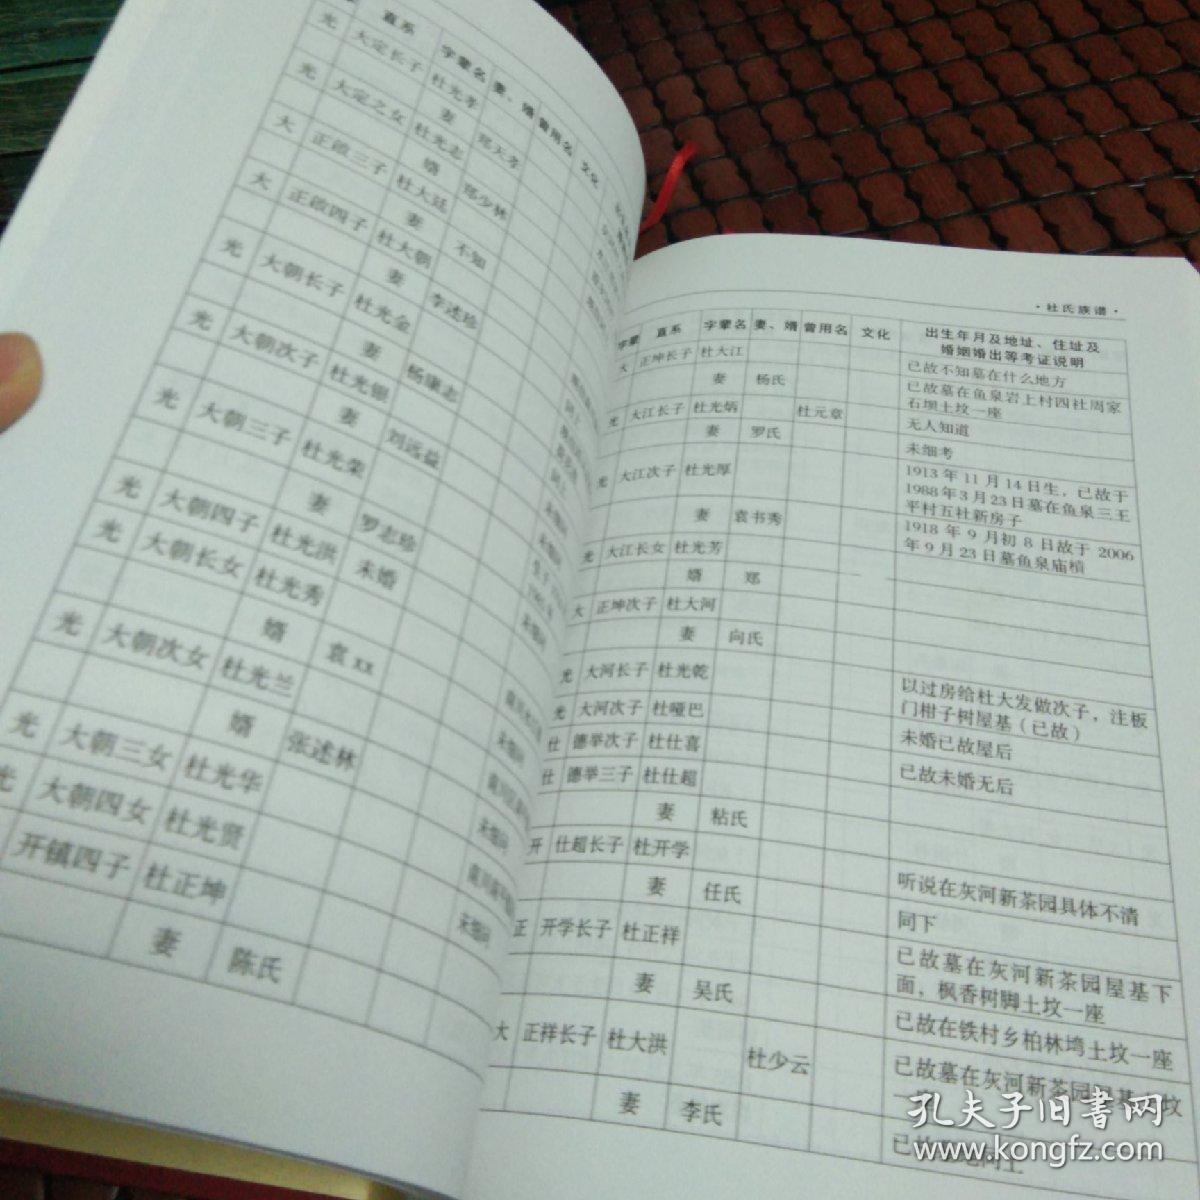 直系 字辈名 妻、婿 曾用名 文化
光 大定长子 杜光孝
妻 郑天孝
光 大定之女 杜光志
婿 郑少林
大 正啟三子 杜大廷
妻 不知
大 正啟四子 杜大朝
妻 李述珍
光 大朝长子 杜光金
妻 杨康志
光 大朝次子 杜光银
妻 刘远益
光 大朝三子 杜光荣
妻 罗志珍
光 大朝四子 杜光洪 未婚
光 大朝长女 杜光秀
婿 袁xx
光 大朝次女 杜光兰
婿 张述林
光 大朝三女 杜光华
光 大朝四女 杜光贤
开镇四子 杜正坤
妻 陈氏
·杜氏族谱·
字辈 直系 字辈名 妻、婿 曾用名 文化 出生年月及地址、住址及
婚姻婚出等考证说明
大 正坤长子 杜大江 已故不知墓在什么地方
妻 杨氏 已故墓在鱼泉岩上村四社周家
石坝土坟一座
光 大江长子 杜光炳 杜元章 无人知道
妻 罗氏 未细考
光 大江次子 杜光厚 1913年11月14日生，已故于
1988年3月23日墓在鱼泉三王
平村五社新房子
妻 袁书秀 1918年9月初8日故于2006
年9月23日墓鱼泉庙槓
光 大江长女 杜光芳
婿 郑
大 正坤次子 杜大河
妻 向氏
光 大河长子 杜光乾 以过房给杜大发做次子，注板
门柑子树屋基（已故）
光 大河次子 杜哑巴 未婚已故屋后
仕 德举次子 杜仕喜 已故未婚无后
仕 德举三子 杜仕超
妻 粘氏
开 仕超长子 杜开学 听说在灰河新茶园具体不清
妻 任氏 同下
正 开学长子 杜正祥 已故墓在灰河新茶园屋基下
面，枫香树脚土坟一座
妻 吴氏 已故在铁村乡柏林塆土坟一座
大 正祥长子 杜大洪 杜少云 已故墓在灰河新茶园屋基土坟
妻 李氏
孔夫子旧书网
www.kongfz.com